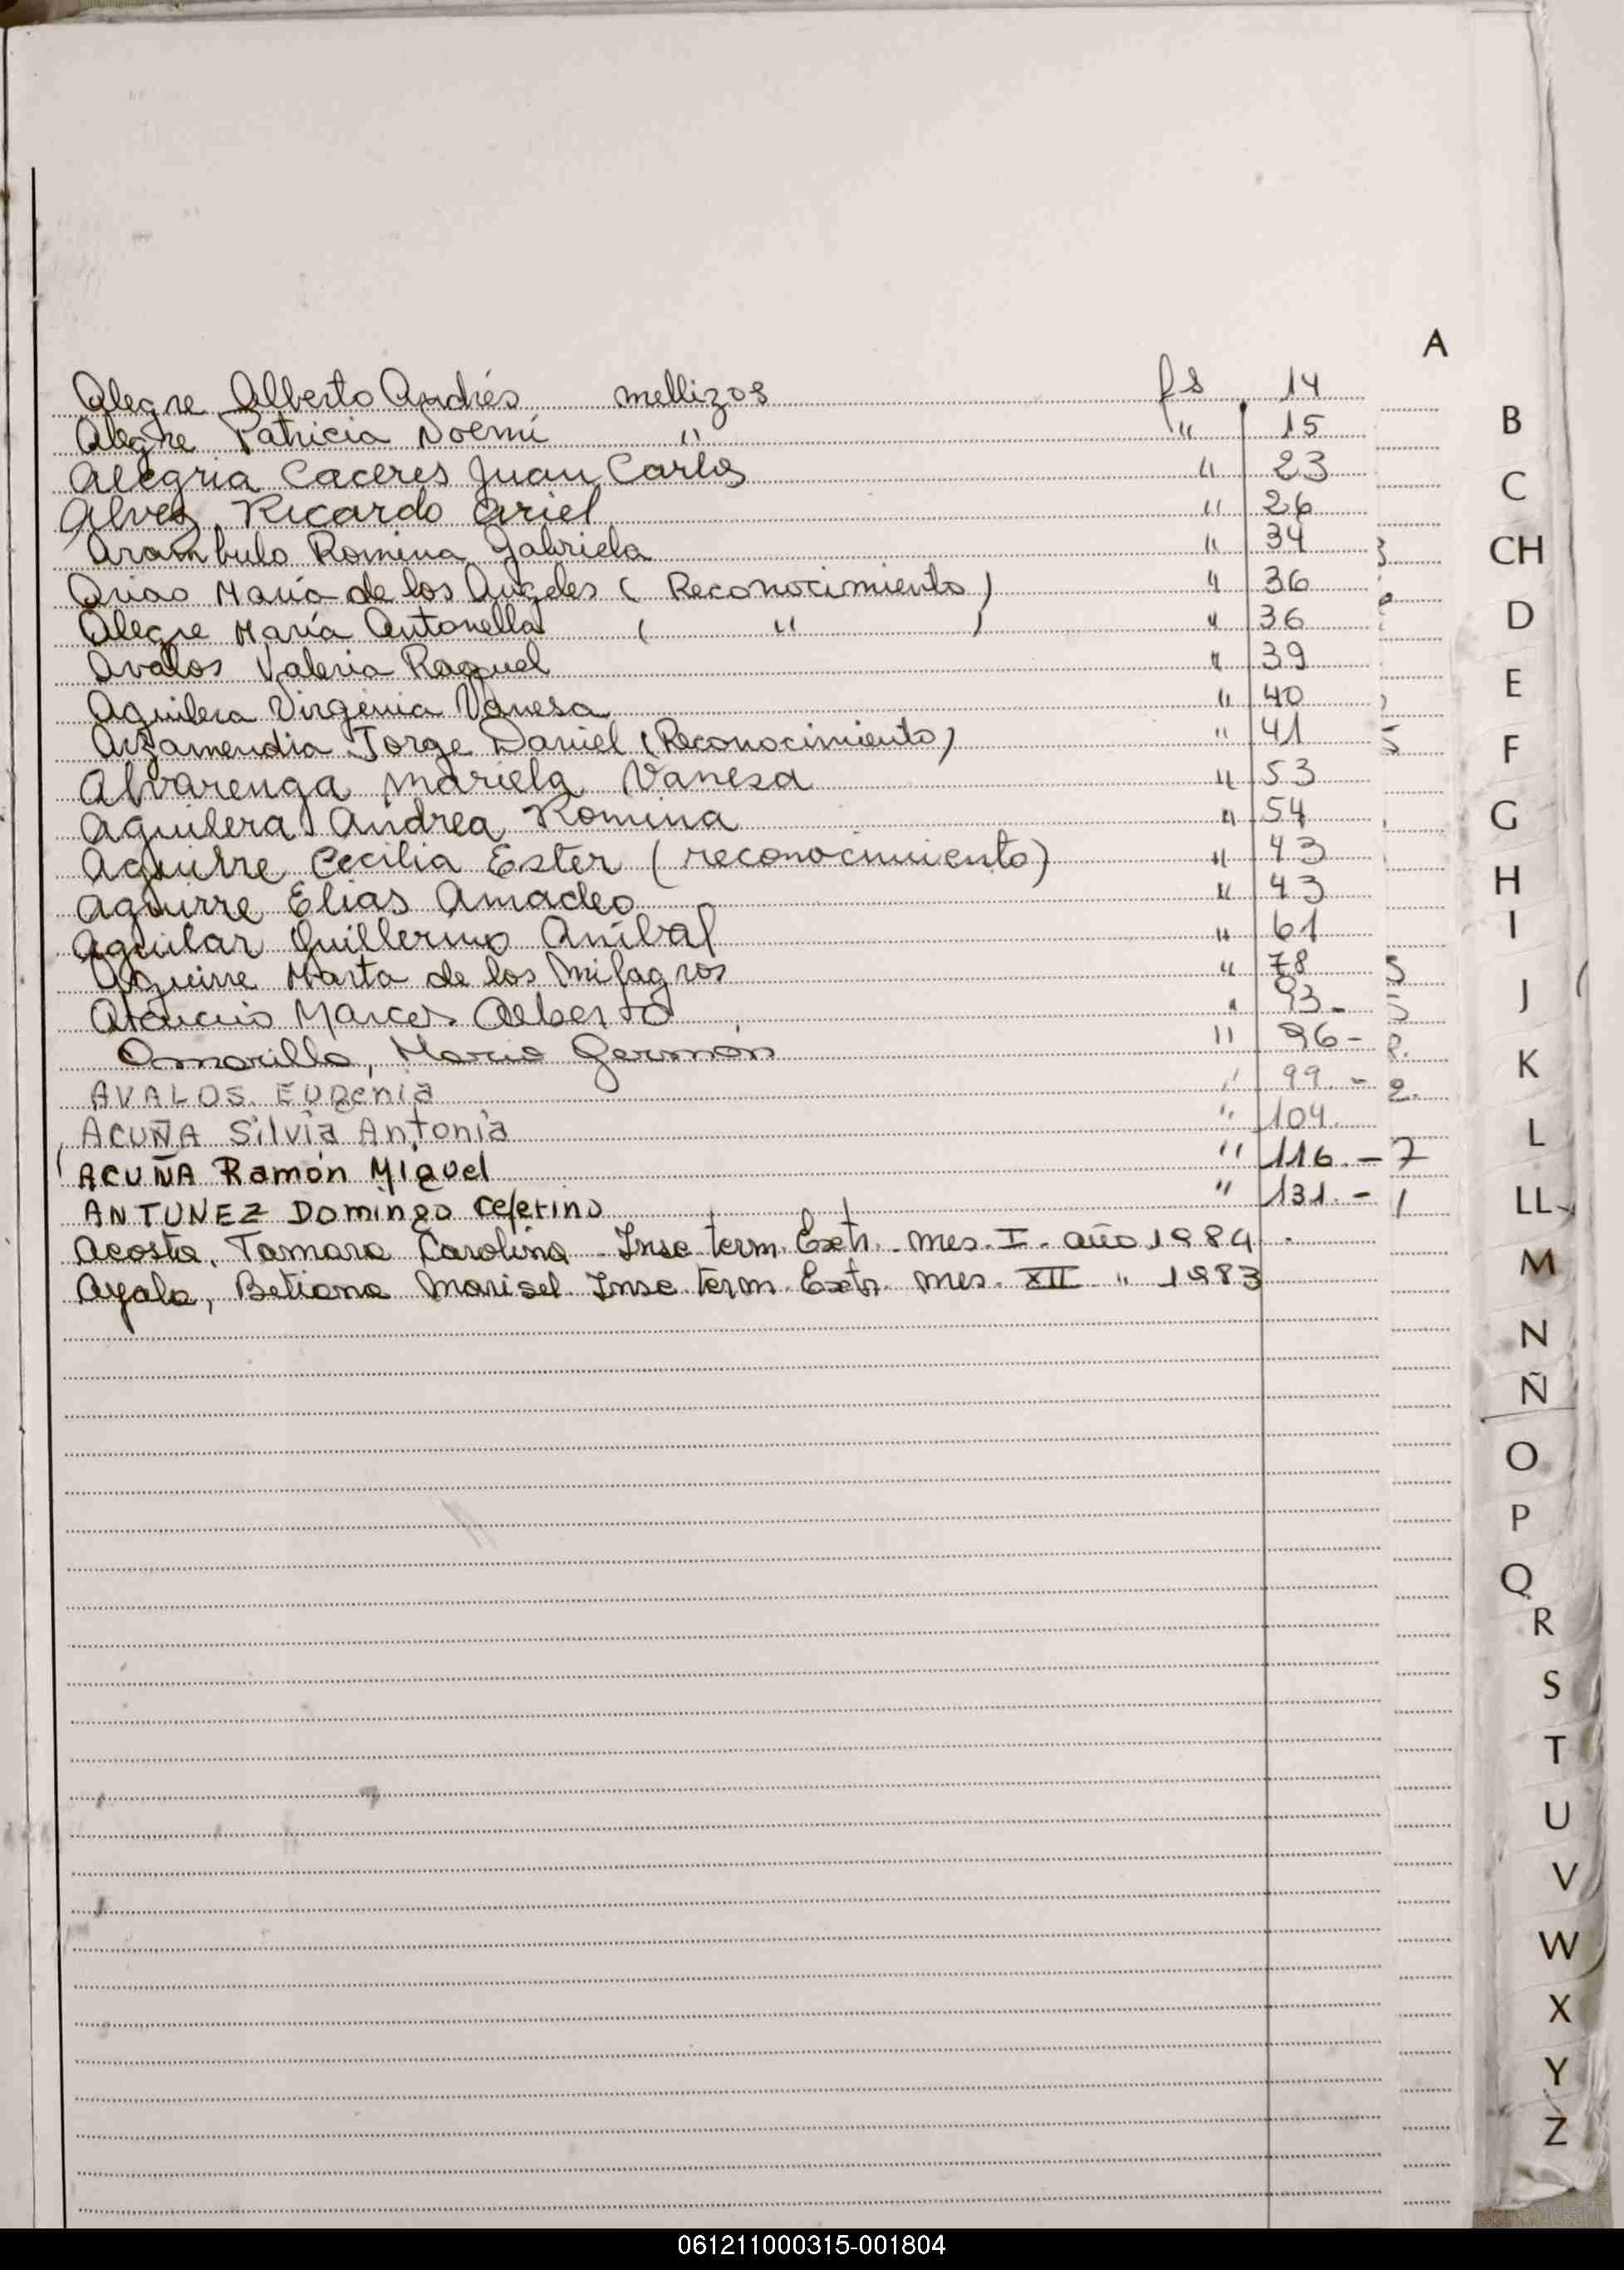 A
Alegre Alberto Andrés mellizos fs 14
Alegre Patricia Noemí " " 15
Alegria Caceres Juan Carlos " 23
Alvez Ricardo Ariel " 26
Arambulo Romina Gabriela " 34
Arias María de los Angeles ( Reconocimiento ) " 36
Alegre María Antonella ( " ) " 36
Avalos Valeria Raquel " 39
Aguilera Virginia Vanesa " 40
Arzamendia Jorge Daniel (Reconocimiento) " 41
Alvarenga Mariela Vanesa " 53
Aguilera Andrea Romina " 54
Aguirre Cecilia Ester (reconocimiento) " 43
Aguirre Elias Amadeo " 43
Aguilar Guillermo Anibal " 61
Aguirre Marta de los Milagros " 78
Marcos Alberto " 93-
Amarilla, Mario Germán " 96-
AVALOS Eugenia " 99-
ACUÑA Silvia Antonia " 104.
ACUÑA Ramón Miguel " 116.-
ANTUNEZ Domingo Ceferino " 131.-
Acosta, Tamara Carolina - Insc term. Extr. mes. I. año 1984.
Ayala, Betiana Marisel. Insc term. Extr. mes. XII " 1983
B
C
CH
D
E
F
G
H
I
J
K
L
LL
M
N
Ñ
O
P
Q
R
S
T
U
V
W
X
Y
Z
061211000315-001804